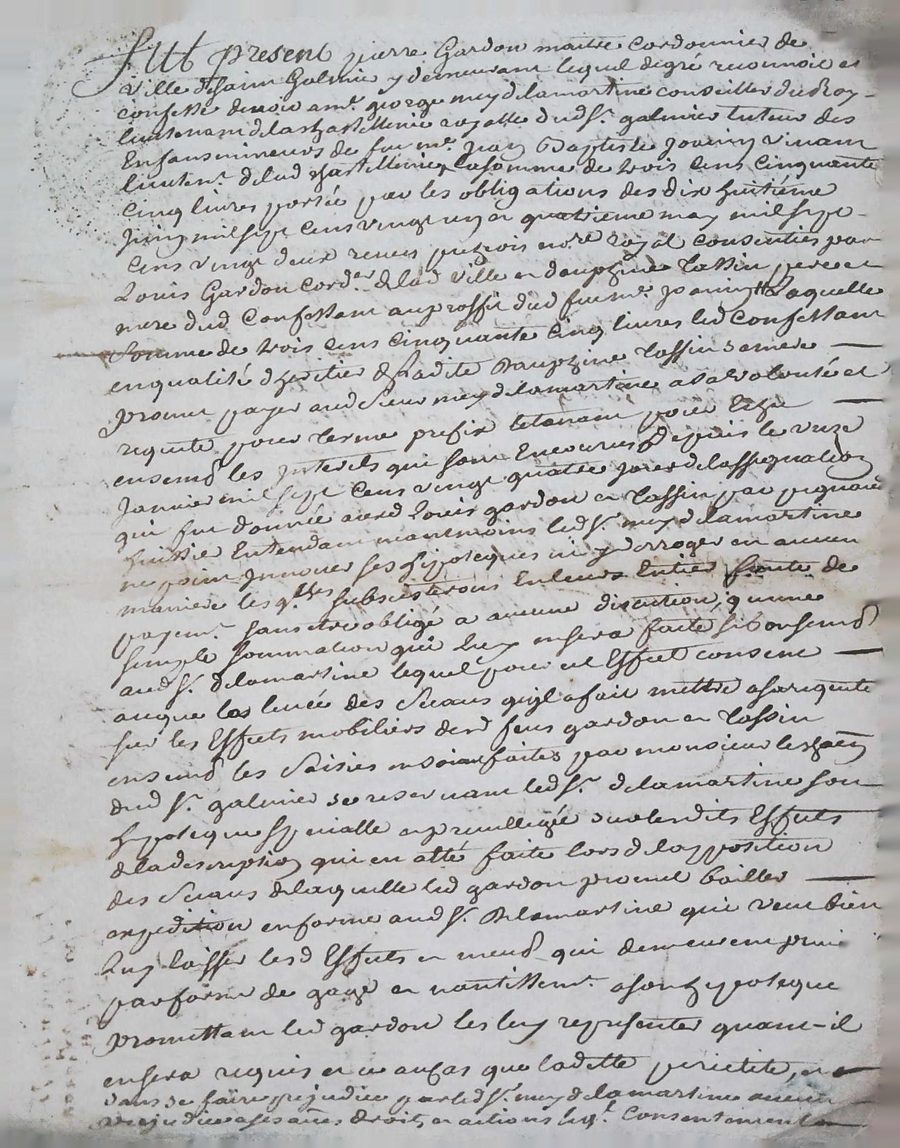 Fut present pierre Gardon maitre Cordonnier de
ville dt Saint Galmier y demeurant lequel degré reconnoit et
confesse devoir a mr. george mey delamartine conseiller du Roy
lieutenant delachastellenie royalle dud St. galmier tuteur des
Enfans mineurs de feu mr. Jean Baptiste Joanny vivant
lieutent. delad chastellenie, la somme de trois cens cinquante
cinq livres portée par les obligations des dix huitiéme
Juin mil sept cens vingt un et quatrieme may mil sept
cens vingt deux receues notre royal consenties par
Louis Gardon Cordr. delad ville et dauphine Tassin pere et
mere dud Confessant auproffit dud feu mr. Joanny Laquelle
somme de trois cens cinquante cinq livres led confessant
en qualité dheritier de ladite Dauphine Tassin sa mere
promet payer aud Sieur mey delamartine a sa volonté et
requete pour terme prefix letenant pour
ensembe les Interets qui sont Encourus depuis le unze
Janvier mil sept cens vingt quatre jour delassignation
qui fut donnée aud Louis gardon et Tassin par pignard
huissier Entendant neantmoins led Sr. mey delamartine
ne point Innover ses hypoteques ni y derroger en aucun
maniere lesqlles subsisteront Enleurs Entier faute de
payemt. sans etre obligé a aucune discution, quune
simple sommation qui luy ensera faite si bon semb
aud Sr. delamartine lequel pour cet Effect consent
aceque la levée des Sceaux quil a fait mettre asarequete
sur les Effects mobiliers desd feus gardon et Tassin
ensemb les saisies faites par monsieur le
dud St. galmier se reservant led Sr. delamartine son
hypoteque specialle et privilegiée surlesdits Effects
deladescription qui en a été faite lors delapposition
des Sceaux delaquelle led gardon promet bailler
expedition enforme aud Sr. delamartine qui veut bien
luy laisser lesd Effects et meub qui demeurent
par forme de gage et nantissemt. a son hypoteque
promettant led gardon les luy representer quant il
ensera requis et en cas que ladette periclite, et
sans se faire prejudice par led Sr. mey delamartine aucun
prejudice a ses autres droits et actions Consentement